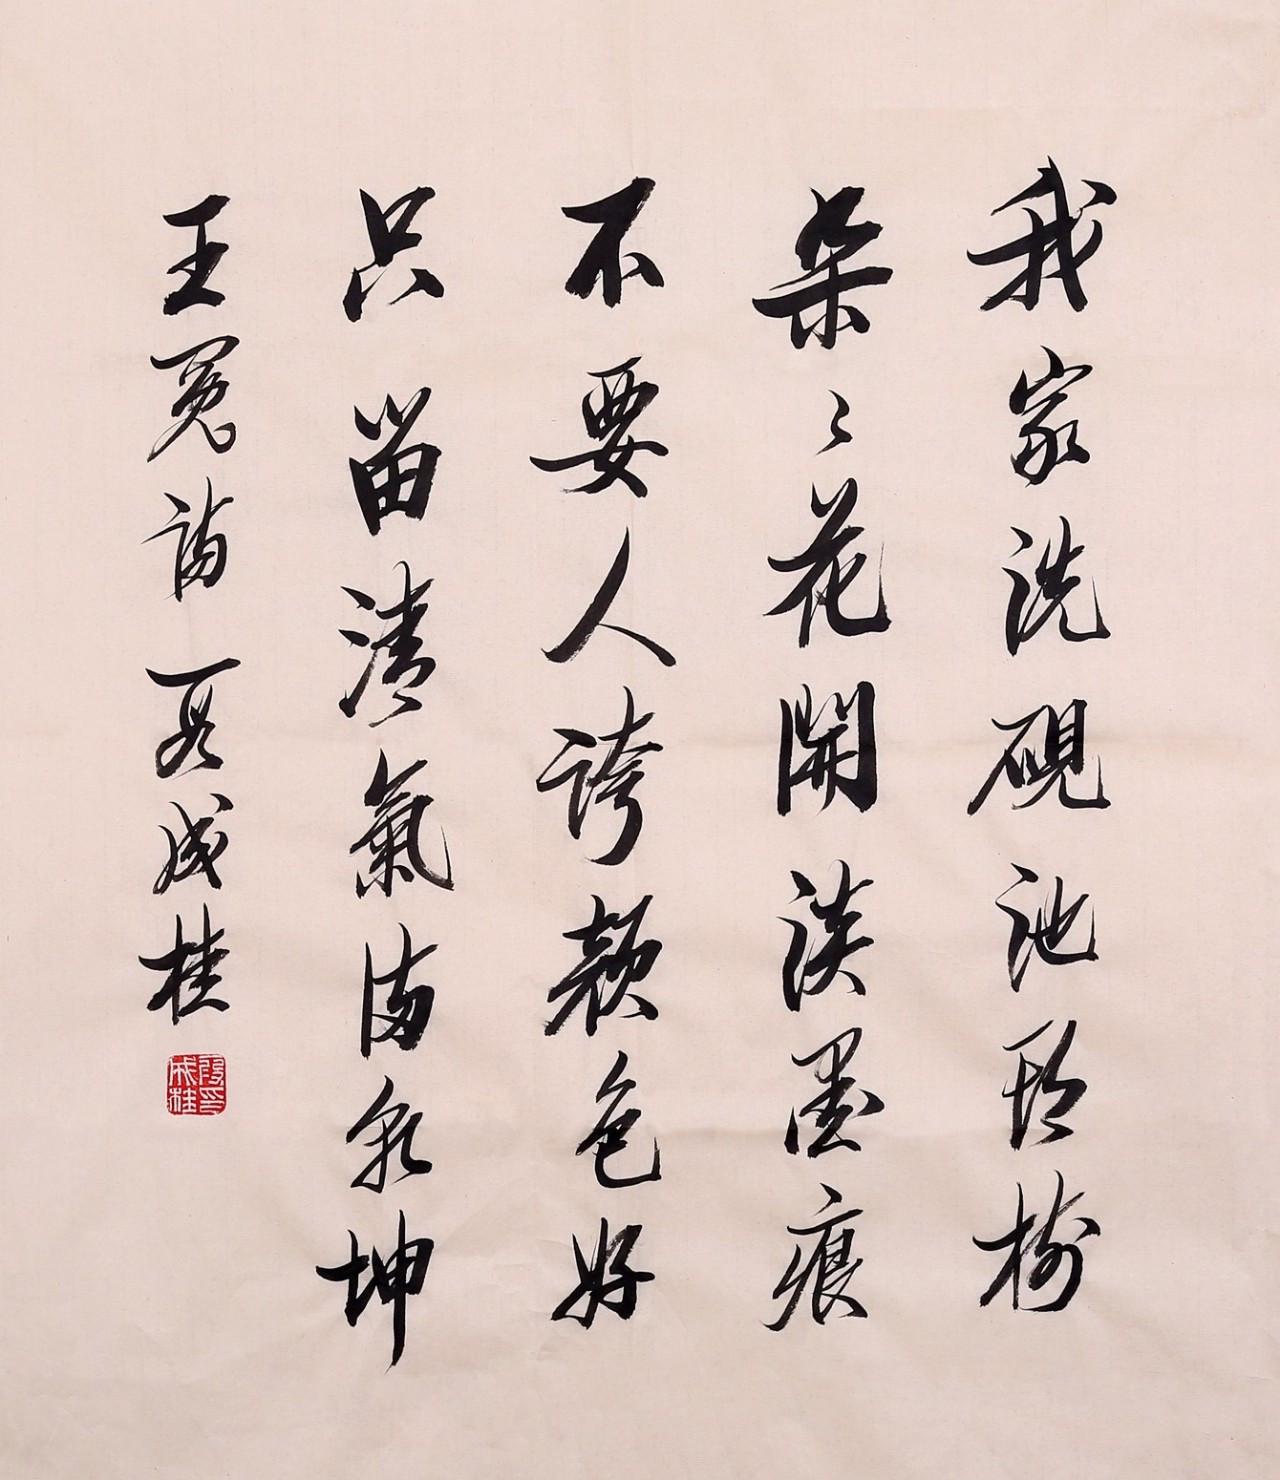 我家洗硯池頭樹
朵〻花開淡墨痕
不要人誇顏色好
只留清氣滿乾坤
王冕詩 段成桂
段印成桂